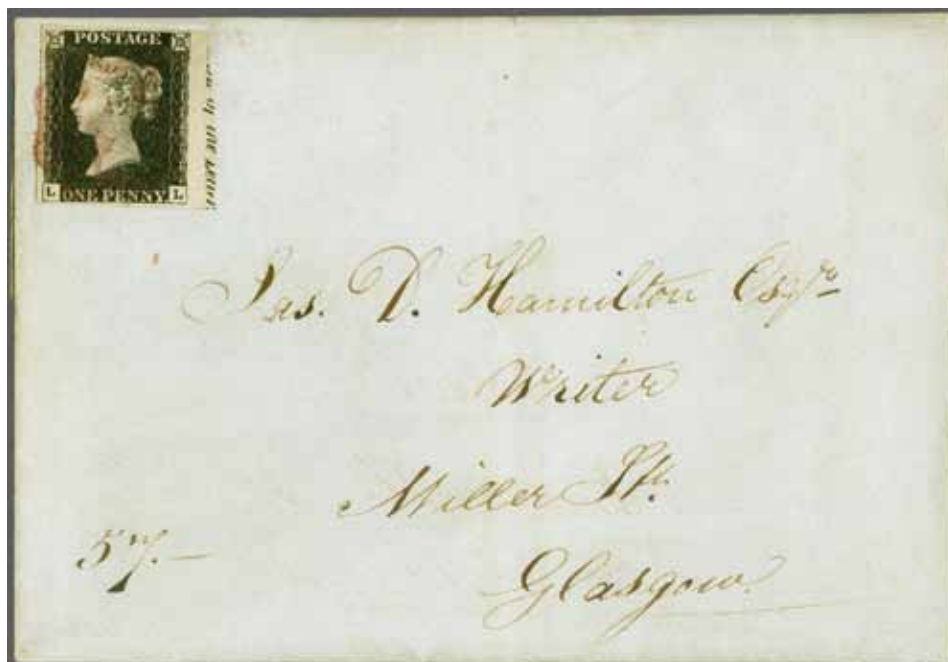 POSTAGE
L ONE PENNY L
of the
Jas. D. Hamilton Esqr.
Writer
Miller St.
Glasgow
57.